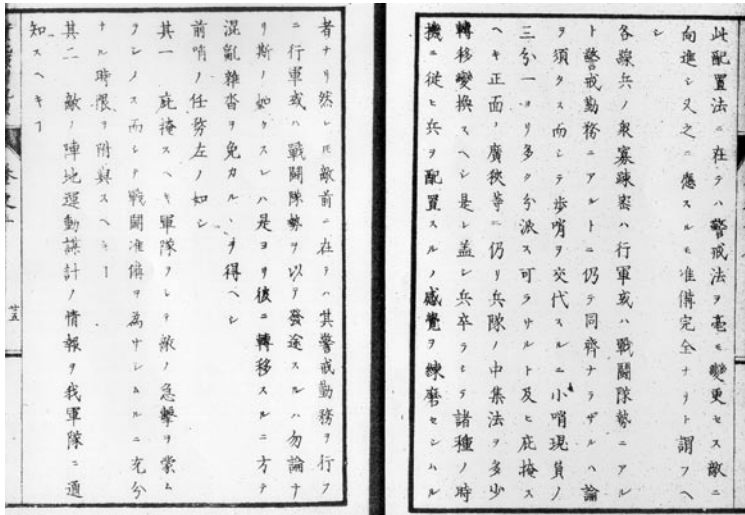 此配置法ニ在テハ警戒法ヲ毫モ變更セス敵ニ
向進シ又之ニ應スルモ准備完全ナリト謂フヘ
シ
各線兵ノ衆寡疎密ハ行軍或ハ戰鬪隊勢ニアル
ト警戒勤務ニアルトニ仍テ同齊ナラザルハ論
ヲ須タス而シテ歩哨ヲ交代スルニ小哨現員ノ
三分一ヨリ多ク分派ス可ラサルト及ヒ庇掩ス
ヘキ正面ノ廣狹等ニ仍リ兵隊ノ中集法ヲ多少
轉移變換スヘシ是レ盖シ兵卒ヲシテ諸種ノ時
機ニ從ヒ兵ヲ配置スルノ感覺ヲ練磨セシムル
者ナリ然レ𪜈敵前ニ在テハ其警戒勤務ヲ行フ
ニ行軍或ハ戰鬪隊勢ヲ以テ發途スルハ勿論ナ
リ斯ノ如クスレハ是ヨリ彼ニ轉移スルニ方テ
混亂雜沓ヲ免カルヽヲ得ヘシ
前哨ノ任務左ノ如シ
其一 庇掩スヘキ軍隊ヲシテ敵ノ急擊ヲ蒙ム
ラシメス而シテ戰鬪准備ヲ爲サシムルニ充分
ナル時限ヲ附與スヘキヿ
其二 敵ノ陣地運動謀計ノ情報ヲ我軍隊ニ通
知スヘキヿ
廿五